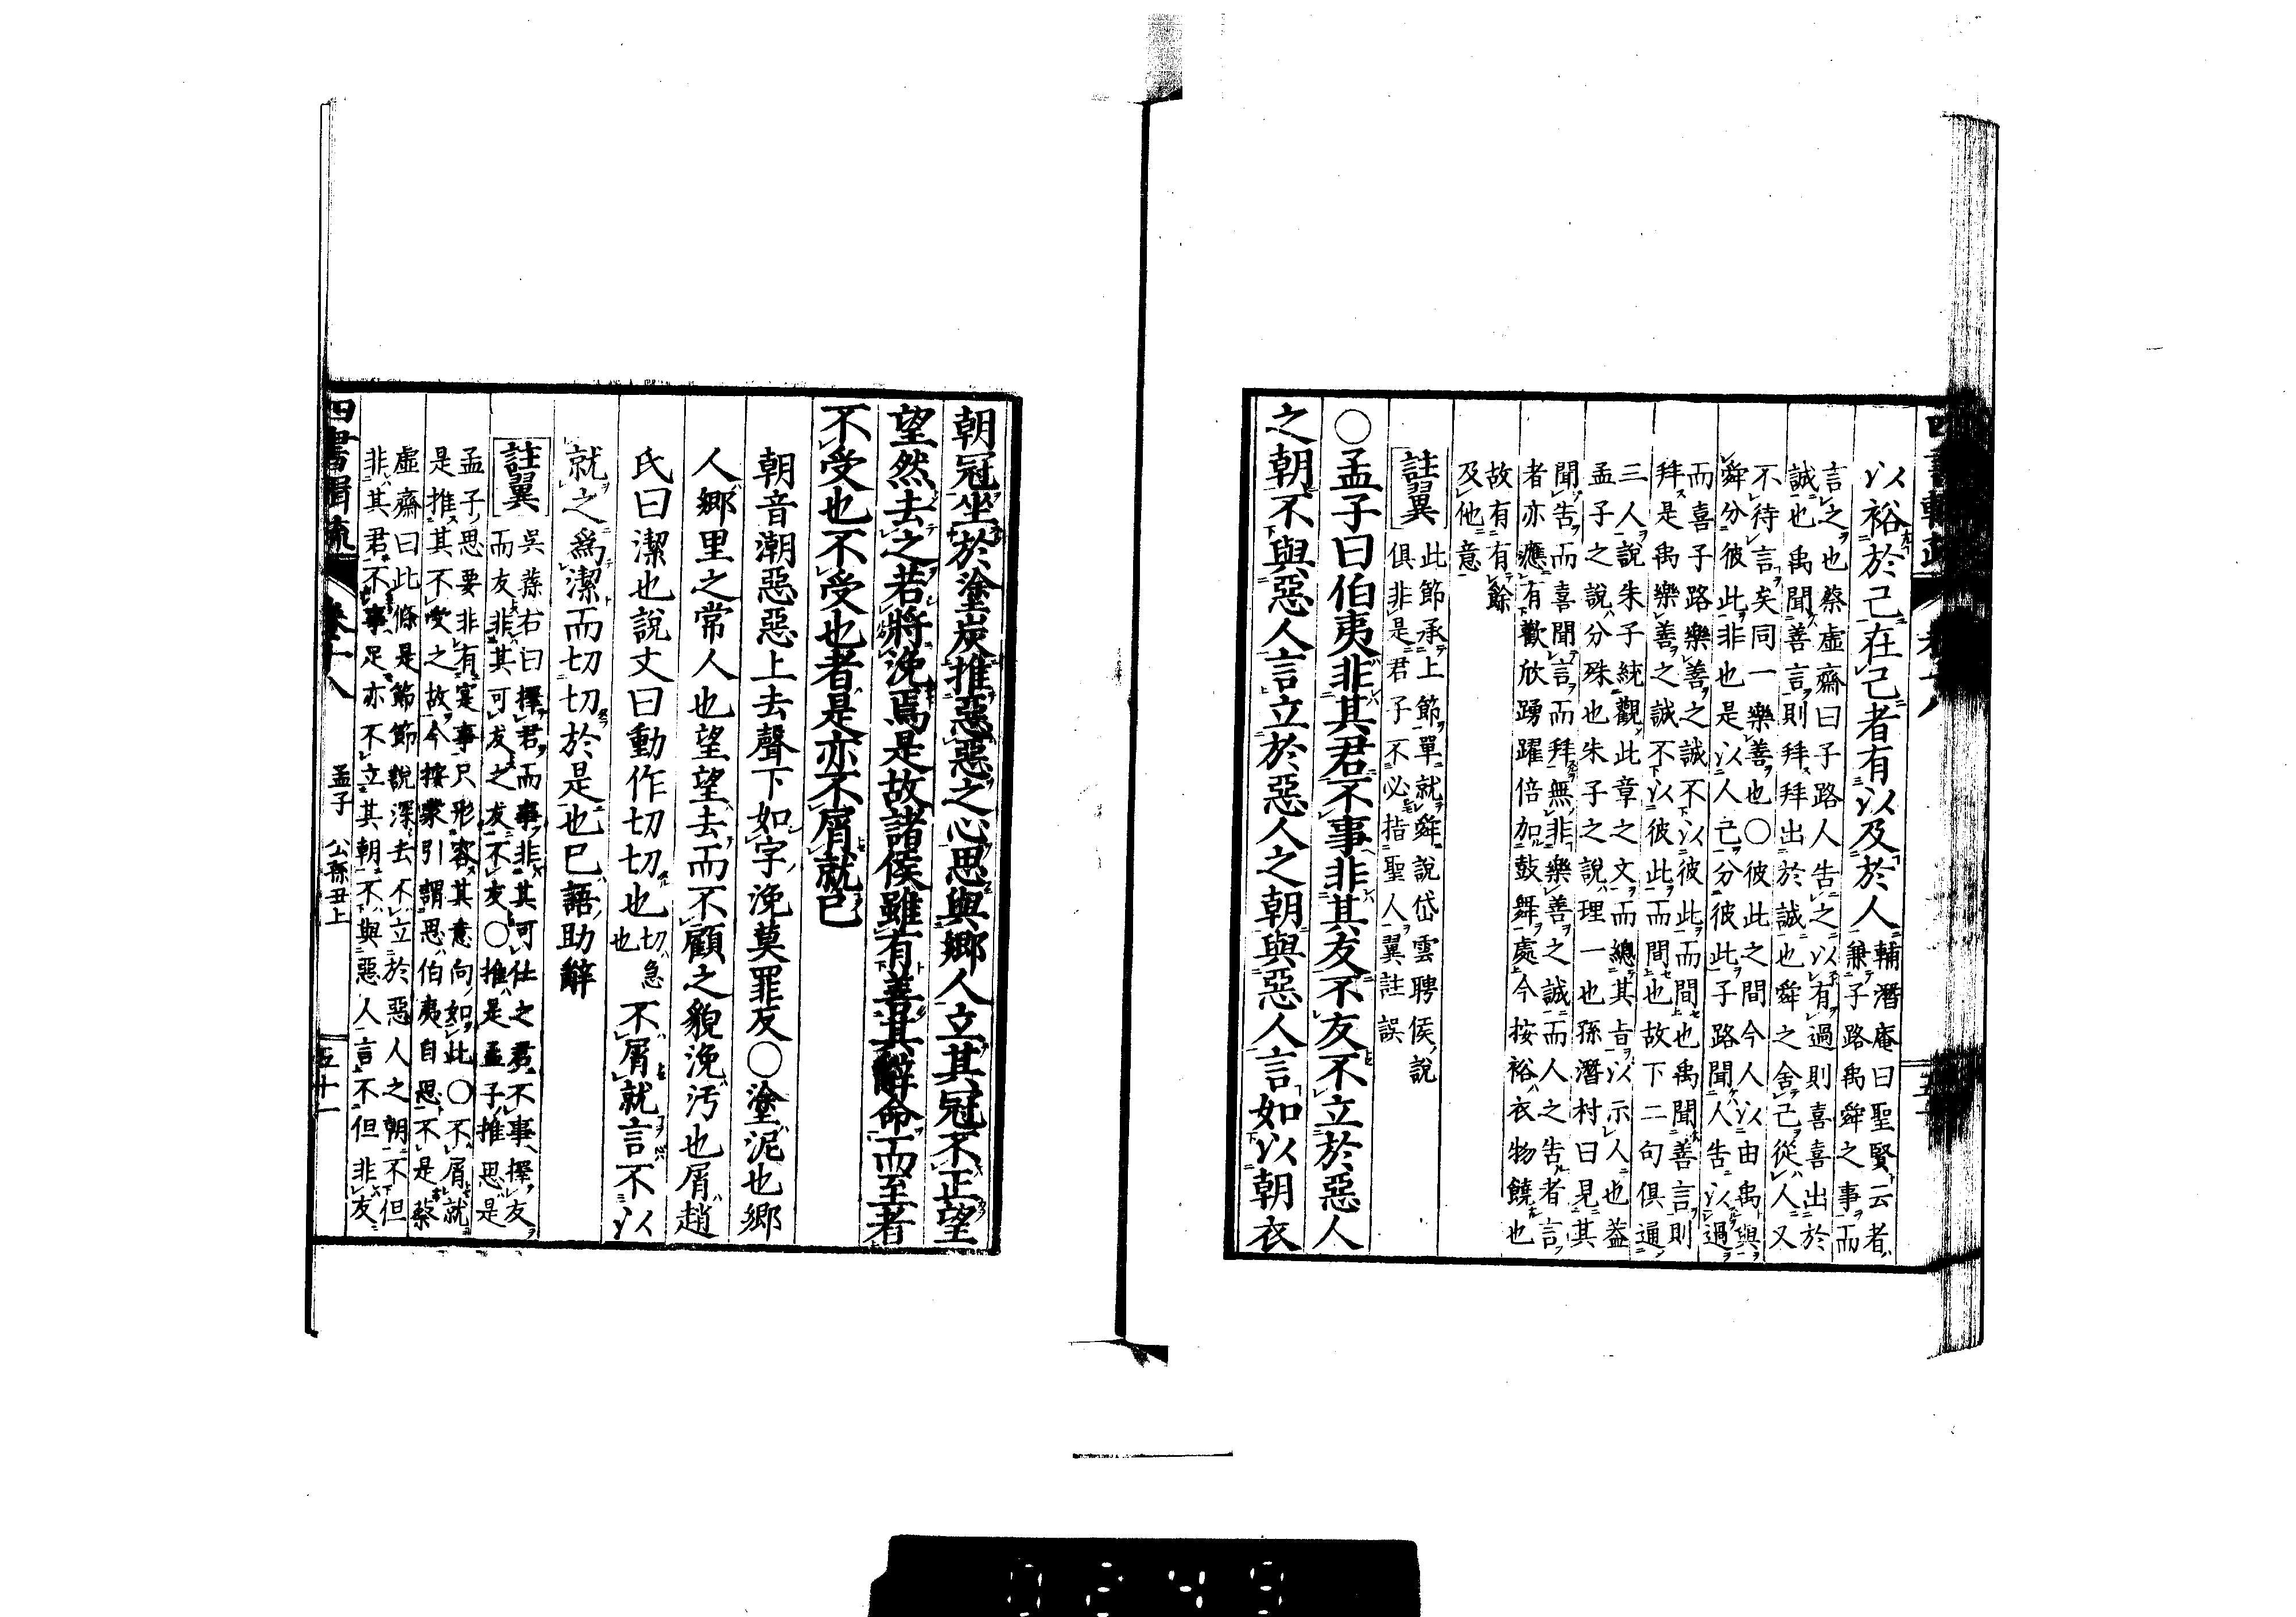 以裕於己在己者有以及於人
輔潛庵曰聖賢云者
兼子路禹舜之事而
言之也蔡虛齋曰子路人告之以有過則喜喜出於
誠也禹聞善言則拜拜出於誠也舜之舍己從人又
不待言矣同一樂善也〇彼此之間今人以由禹與
舜分彼此非也是以人己分彼此子路聞人告以過
而喜子路樂善之誠不以彼此而間也禹聞善言則
拜是禹樂善之誠不以彼此而間也故下二句俱通
三人說朱子統觀此章之文而總其旨以示人也蓋
孟子之說分殊也朱子之說理一也孫潛村曰見其
聞告而喜聞言而拜無非樂善之誠而人之告者言
者亦應有歡欣踴躍倍加鼓舞處今按裕衣物饒也
故有有餘
及他意
註翼
此節承上節單就舜說岱雲聘侯說
俱非是君子不必指聖人翼註誤
〇孟子曰伯夷非其君不事非其友不友不立於惡人
之朝不與惡人言立於惡人之朝與惡人言如以朝衣
朝冠坐於塗炭推惡惡之心思與鄉人立其冠不正望
望然去之若將浼焉是故諸侯雖有善其辭命而至者
不受也不受也者是亦不屑就已
朝音潮惡惡上去聲下如字浼莫罪反〇塗泥也鄉
人鄉里之常人也望望去而不顧之貌浼汚也屑趙
氏曰潔也說文曰動作切切也
切急
也
不屑就言不以
就之爲潔而切切於是也已語助辭
註翼
吳蓀右曰擇君而事非其可仕之君不事擇友
而友非其可友之友不友〇推是孟子推思是
孟子思要非有寔事只形容其意向如此〇不屑就
是推其不受之故今按蒙引謂思伯夷自思不是蔡
虛齋曰此條是節節說深去不立於惡人之朝不但
非其君不事足亦不立其朝不與惡人言不但非友
四書輯疏
卷十八
孟子
公孫丑上
五十一